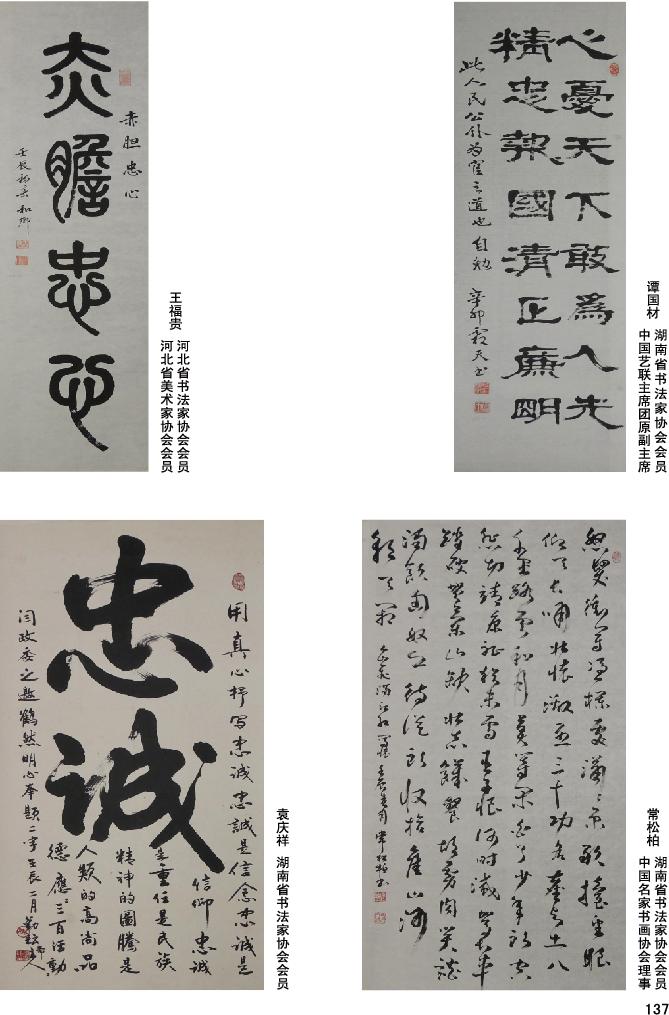 赤膽忠心
赤胆忠心
王福贵
河北省书法家协会会员
河北省美术家协会会员
心憂天下敢為人先
精忠報國清正廉明
此人民公仆为官之道也 自勉 辛卯霜天书
谭国材
湖南省书法家协会会员
中国艺联主席团原副主席
忠诚
用真心抒写忠诚 忠誠是信念 忠诚是
信仰 忠诚
是重任 是民族
精神的圖騰 是
人類的高尚品
德
闫政委之邀 鶴然明心奉題二字 壬辰二月
袁庆祥 湖南省书法家协会会员
怒髮衝冠凭栏处潇潇雨歇抬望眼
仰天长啸壮怀激烈三十功名尘与土八
千里路云和月莫等闲白了少年头空
悲切靖康耻犹未雪臣子恨何时灭驾长车
踏破贺兰山缺壮志饥餐胡虏肉笑谈
渴饮匈奴血待从头收拾旧山河
朝天阙 岳飞满江红 壬辰 常松柏书
常松柏
湖南省书法家协会会员
中国名家书画协会理事
137